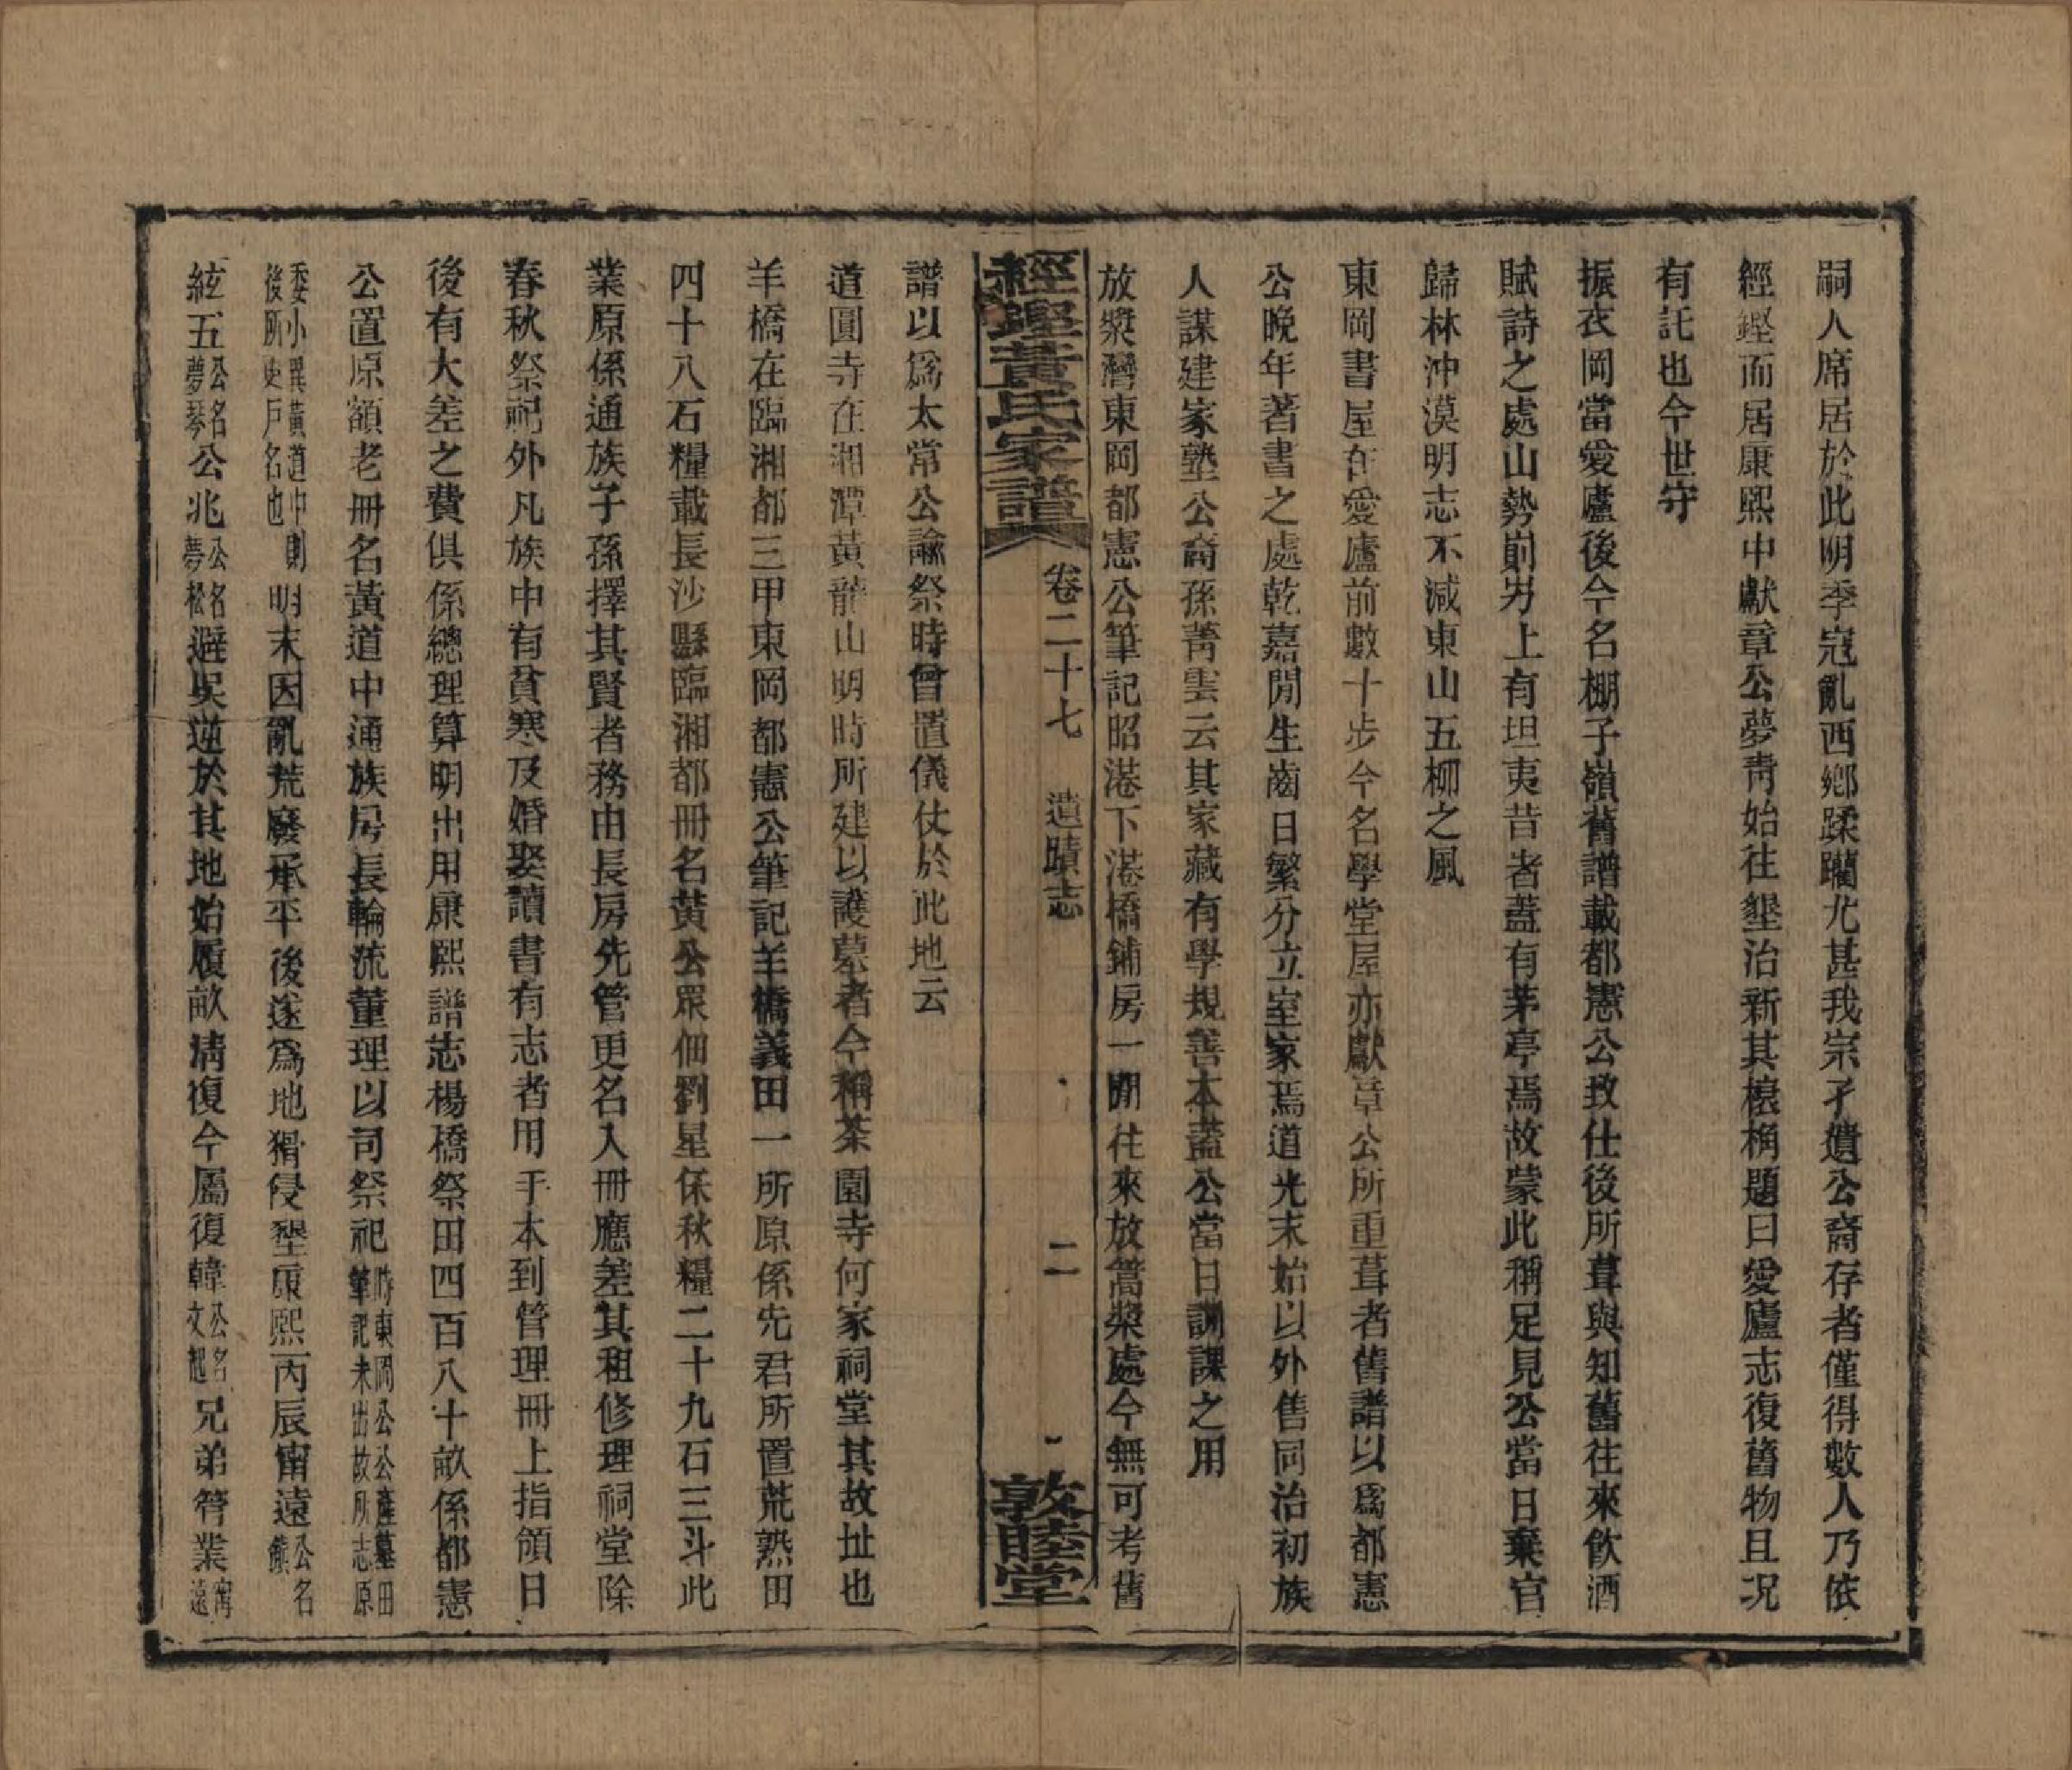 嗣人席居於此明季寇亂西鄉蹂躪尤甚我宗孑遺公裔存者僅得數人乃依
經鏗而居康熙中獻章公夢靑始往墾治新其榱桷題曰愛廬志復舊物且况
有託也今世守
振衣岡當愛廬後今名棚子嶺舊譜載都憲公致仕後所葺與知舊往來飮酒
賦詩之處山勢崱屴上有坦夷昔者蓋有茅亭焉故蒙此稱足見公當日棄官
歸林沖漠明志不減東山五柳之風
東岡書屋在愛廬前數十步今名學堂屋亦獻章公所重葺者舊譜以爲都憲
公晚年著書之處乾嘉閒生齒日繁分立室家焉道光末始以外售同治初族
人謀建家塾公裔孫菁雲云其家藏有學規善本蓋公當日訓課之用
放槳灣東岡都憲公筆記昭港下港橋鋪房一閒往來放篙槳處今無可考舊
經鏗黃氏家譜 卷二十七 遺蹟志 二 敦睦堂
譜以爲太常公諭祭時曾置儀仗於此地云
道圓寺在湘潭黃龍山明時所建以護墓者今稱茶園寺何家祠堂其故址也
羊橋在臨湘都三甲東岡都憲公筆記羊橋義田一所原係先君所置荒熟田
四十八石糧載長沙縣臨湘都冊名黃公眾佃劉星保秋糧二十九石三斗此
業原係通族子孫擇其賢者務由長房先管更名入冊應差其租修理祠堂除
春秋祭祀外凡族中有貧寒及婚娶讀書有志者用手本到管理冊上指領日
後有大差之費俱係總理算明出用康熙譜志楊橋祭田四百八十畝係都憲
公置原額老冊名黃道中通族房長輪流董理以司祭祀時東岡公公產墓田筆記未出故所志原
委小異黃道中則後所更戶名也明末因亂荒廢承平後遂爲地猾侵墾康熙丙辰甯遠公名熊
絃五公名夢琴公兆公名夢松避吳逆於其地始履畝淸復今屬復韓公名文起兄弟管業甯遠